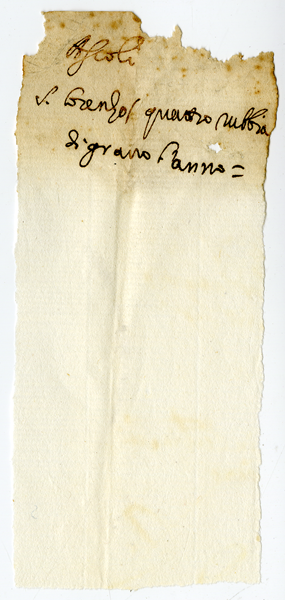 Ascoli
S. Lorenzo / quattro rubbia
di grano l'anno =